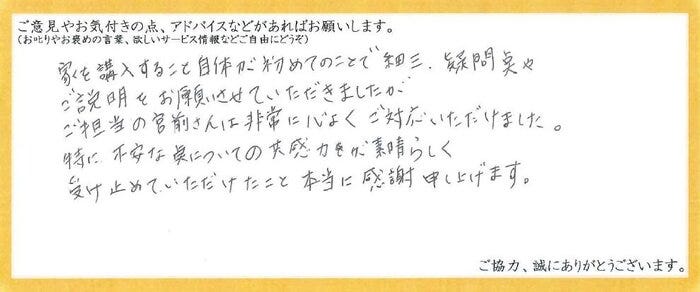 ご意見やお気付きの点、アドバイスなどがあればお願いします。
(お叱りやお褒めの言葉、欲しいサービス情報などご自由にどうぞ)
家を購入すること自体が初めてのことで 細三、疑問点や
ご説明をお願いさせていただきましたが
ご担当の宮前さんは非常に心よくご対応いただけました。
特に 不安な点についての共感力をが素晴らしく
受け止めていただけたこと 本当に感謝申し上げます。
ご協力、誠にありがとうございます。